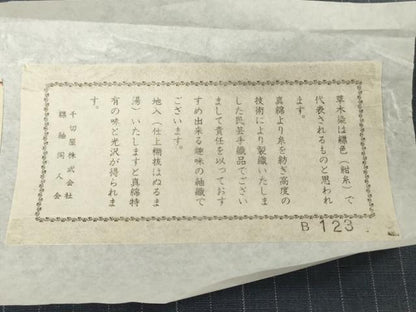 草木染は縹色（紺糸）で
代表されるものと思われ
ます。
真綿より糸を紡ぎ高度の
技術により製織いたしま
した民芸手織品でござい
まして責任を以っておす
すめ出来る趣味の紬織で
ございます。
地入（仕上糊抜はぬるま
湯）いたしますと真綿特
有の味と光沢が得られま
す。
千切屋株式会社
縹紬同人会
B 123